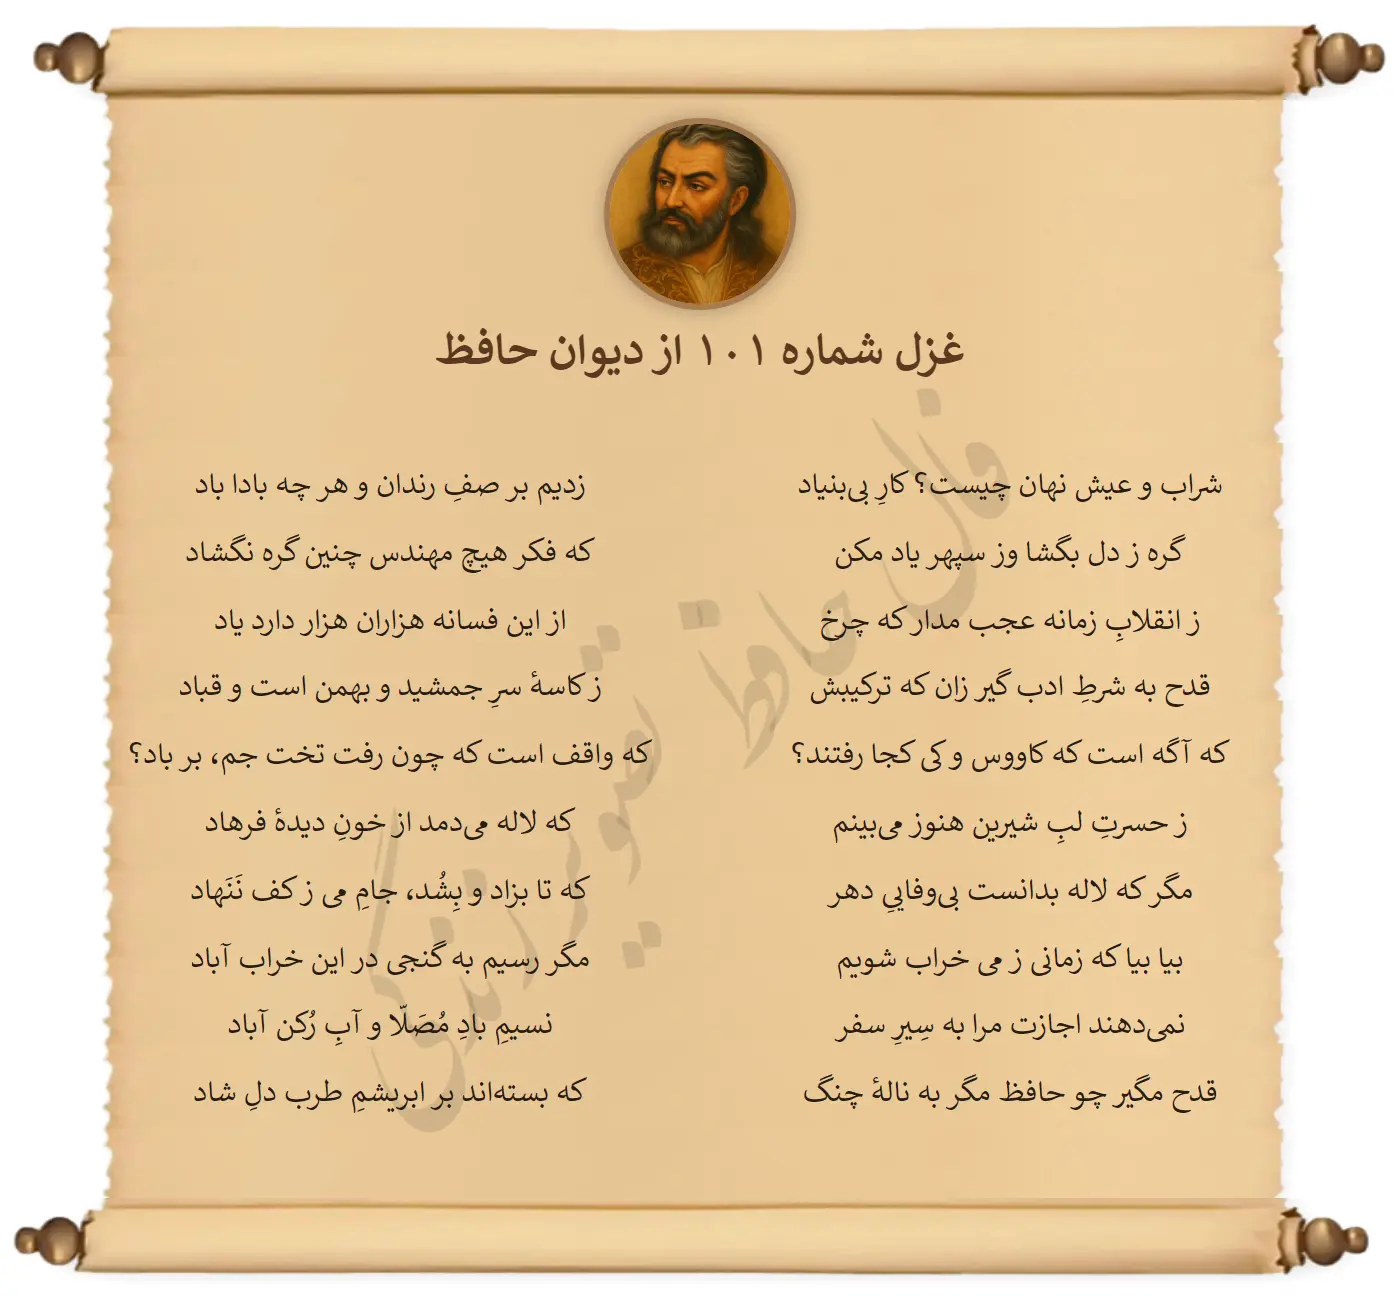 غزل شماره ۱۰۱ از دیوان حافظ
شراب و عیش نهان چیست؟ کارِ بی‌بنیاد زدیم بر صفِ رندان و هر چه بادا باد
گره ز دل بگشا وز سپهر یاد مکن که فکر هیچ مهندس چنین گره نگشاد
ز انقلابِ زمانه عجب مدار که چرخ از این فسانه هزاران هزار دارد یاد
قدح به شرطِ ادب گیر زان که ترکیبش ز کاسهٔ سرِ جمشید و بهمن است و قباد
که آگه است که کاووس و کی کجا رفتند؟ که واقف است که چون رفت تخت جم، بر باد؟
ز حسرتِ لبِ شیرین هنوز می‌بینم که لاله می‌دمد از خونِ دیدهٔ فرهاد
مگر که لاله بدانست بی‌وفاییِ دهر که تا بزاد و بِشُد، جامِ می ز کف نَنَهاد
بیا بیا که زمانی ز می خراب شویم مگر رسیم به گنجی در این خراب آباد
نمی‌دهند اجازت مرا به سِیرِ سفر نسیمِ بادِ مُصَلّا و آبِ رُکن آباد
قدح مگیر چو حافظ مگر به نالهٔ چنگ که بسته‌اند بر ابریشمِ طرب دلِ شاد
فال حافظ تصویر زندگی